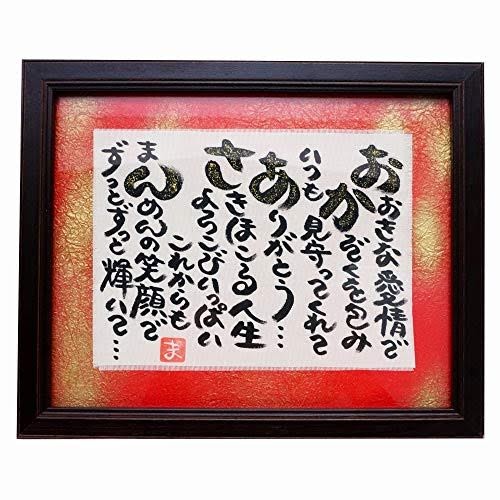 おおきな愛情で
かぞくを包み
いつも見守ってくれて
ありがとう…
さきほこる人生
よろこびいっぱい
これからも
まんめんの笑顔で
ずっとずっと輝いて…
ま